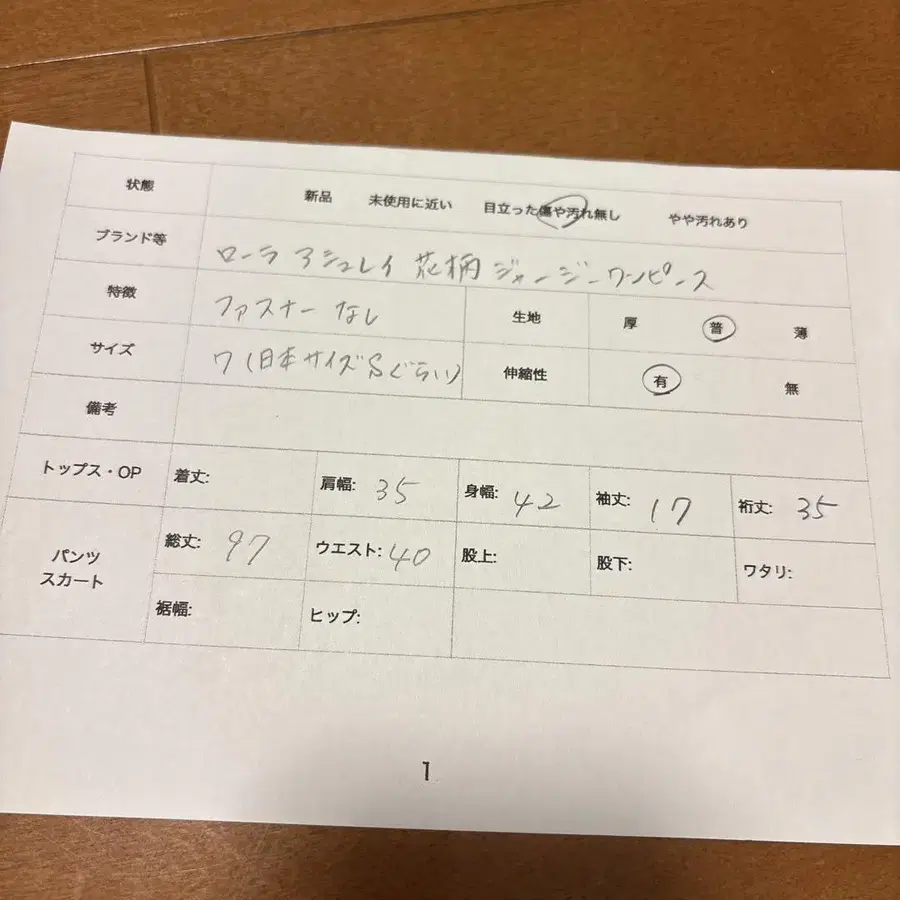 状態 新品 未使用に近い 目立った傷や汚れ無し やや汚れあり
ブランド等 ローラ アシュレイ 花柄 ジャージーワンピース
特徴 ファスナー なし 生地 厚 普 薄
サイズ 7 (日本サイズSぐらい) 伸縮性 有 無
備考
トップス・OP 着丈: 肩幅: 35 身幅: 42 袖丈: 17 裄丈: 35
パンツ
スカート
総丈: 97 ウエスト: 40 股上: 股下: ワタリ:
裾幅: ヒップ:
1